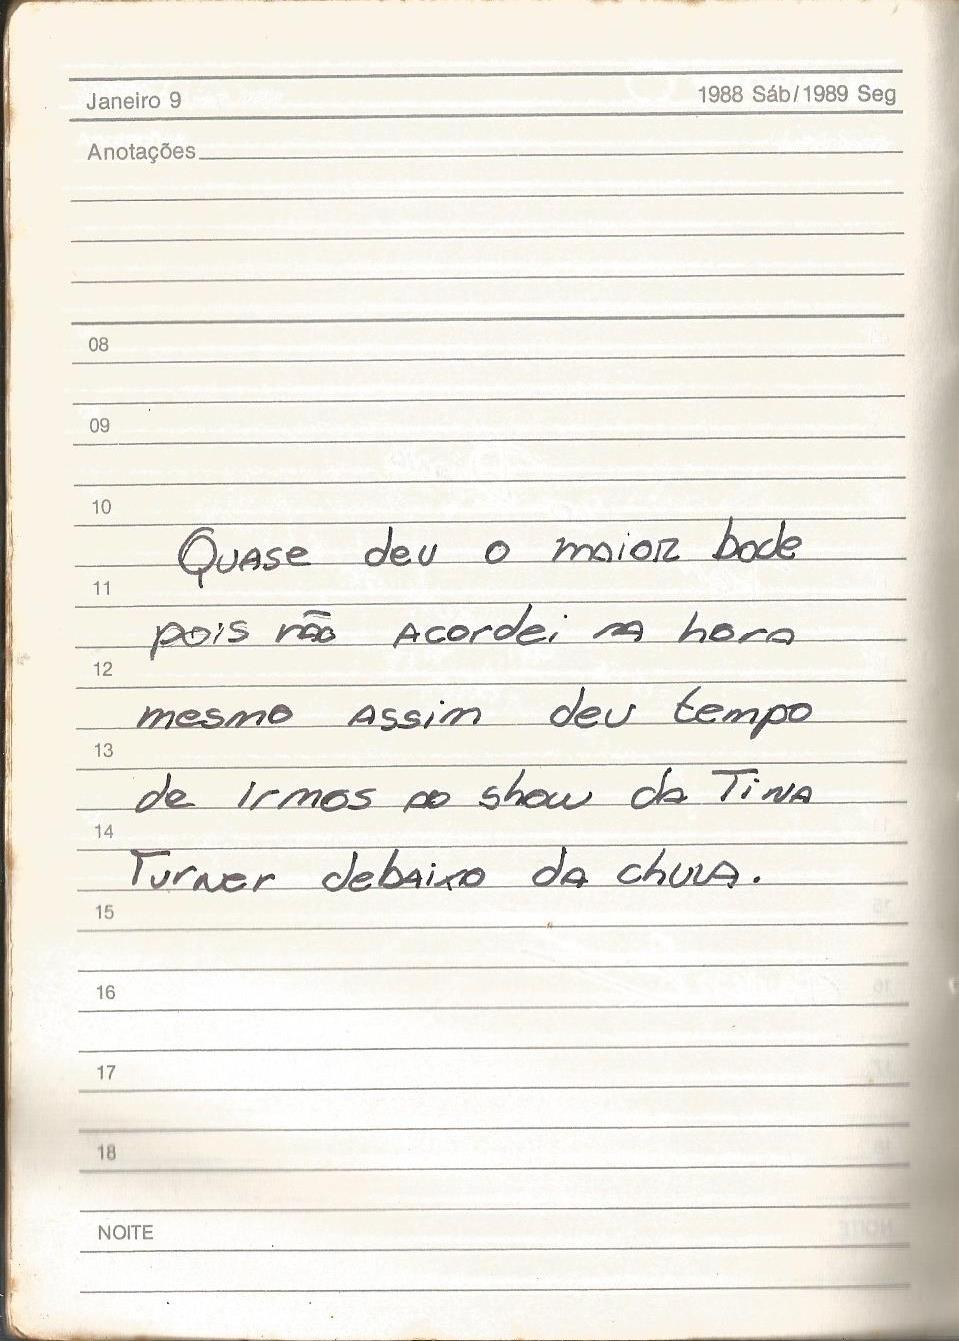 Janeiro 9
1988 Sáb/1989 Seg
Anotações
08
09
10
Quase deu o maior bode
11
pois não acordei na hora
12
mesmo assim deu tempo
13
de irmos ao show da Tina
14
Turner debaixo da chuva.
15
16
17
18
NOITE